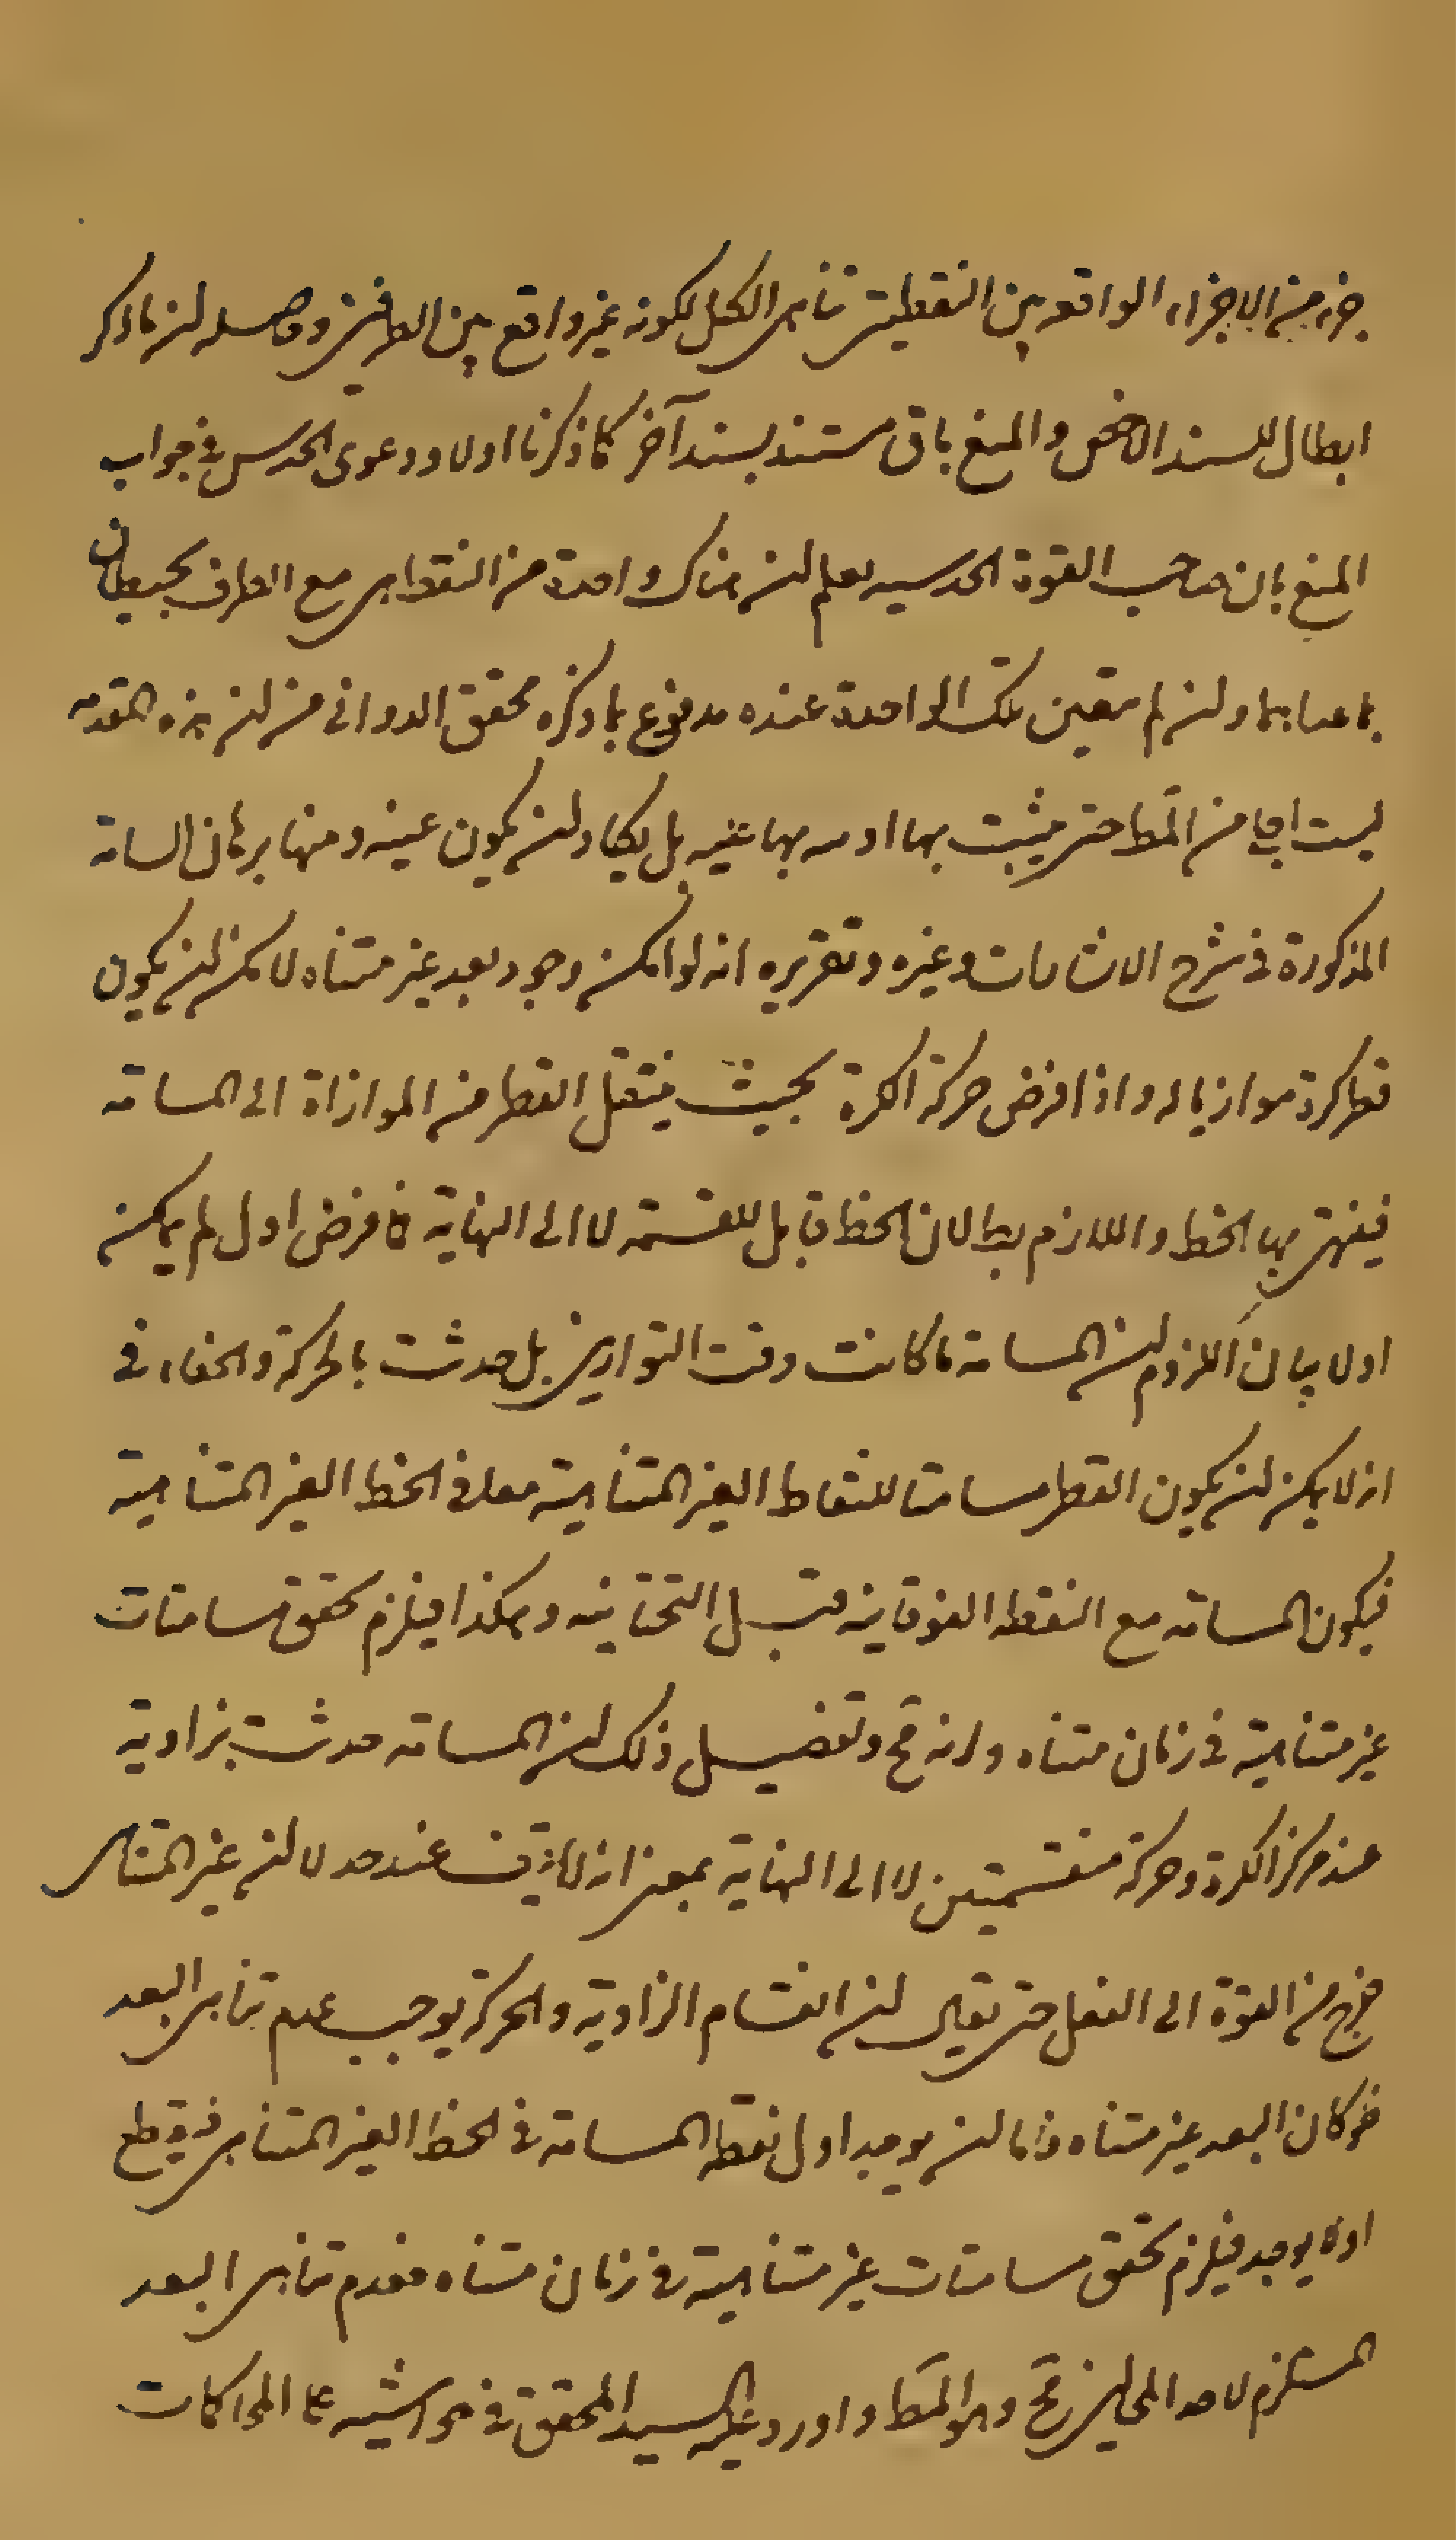 جزء من الاجزاء الواقعه بين النقطتين تناهى الكل لكونه غير واقع بين الطرفين وحاصله ان ما ذكر
ابطال للسند الاخص والمنع باق مستند بسند آخر كما ذكرنا اولا ودعوى الحدس فى جواب
المنع بان صاحب القوة الحدسيه يعلم ان هناك واحدة من النقط هى مع الطرف محيطان
بما عداهما وان لم يتعين تلك الواحدة عنده مدفوع بما ذكره محقق الدوانى من ان هذه المقدمه
ليست اجلى من المط حتى يثبت بها او بها غيره بل يكاد ان يكون عينه ومنها برهان المسامته
المذكورة فى شرح الاشارات وغيره وتقريره انه لو امكن وجود بعد غير متناه لامكن ان يكون
قطر كرة موازيا له واذا فرض حركة الكرة بحيث ينتقل القطر من الموازاة الى المسامته
فينتهى بها الخط واللازم بط لان الخط قابل للقسمه لا الى النهاية فما فرض اول لم يكن
اولا بيان اللزوم ان المسامته ما كانت وقت التوازى بل حدثت بالحركة والخفاء فى
انه لا يمكن ان يكون القطر مسامتا للنقاط الغير المتناهية معا فى الخط الغير المتناهية
فيكون المسامته مع النقطه الفوقانيه قبل التحتانيه وهكذا فيلزم تحقق مسامتات
غير متناهية فى زمان متناه وانه مح وتفصيل ذلك ان المسامته حدثت بزاوية
عند مركز الكرة وحركة منقسمتين لا الى النهاية بمعنى انه لا يقف عند حد لا ان غير المتناهى
خرج من القوة الى الفعل حتى يقال ان انقسام الزاوية والحركة يوجب عدم تناهى البعد
فلو كان البعد غير متناه فاما ان يوجد اول نقطه المسامته فى الخط الغير المتناهى فينقطع
او لا يوجد فيلزم تحقق مسامتات غير متناهية فى زمان متناه فعدم تناهى البعد
المستلزم لاحد المحالين مح وهو المط واورد عليه السيد المحقق فى حواشيه على المحاكمات